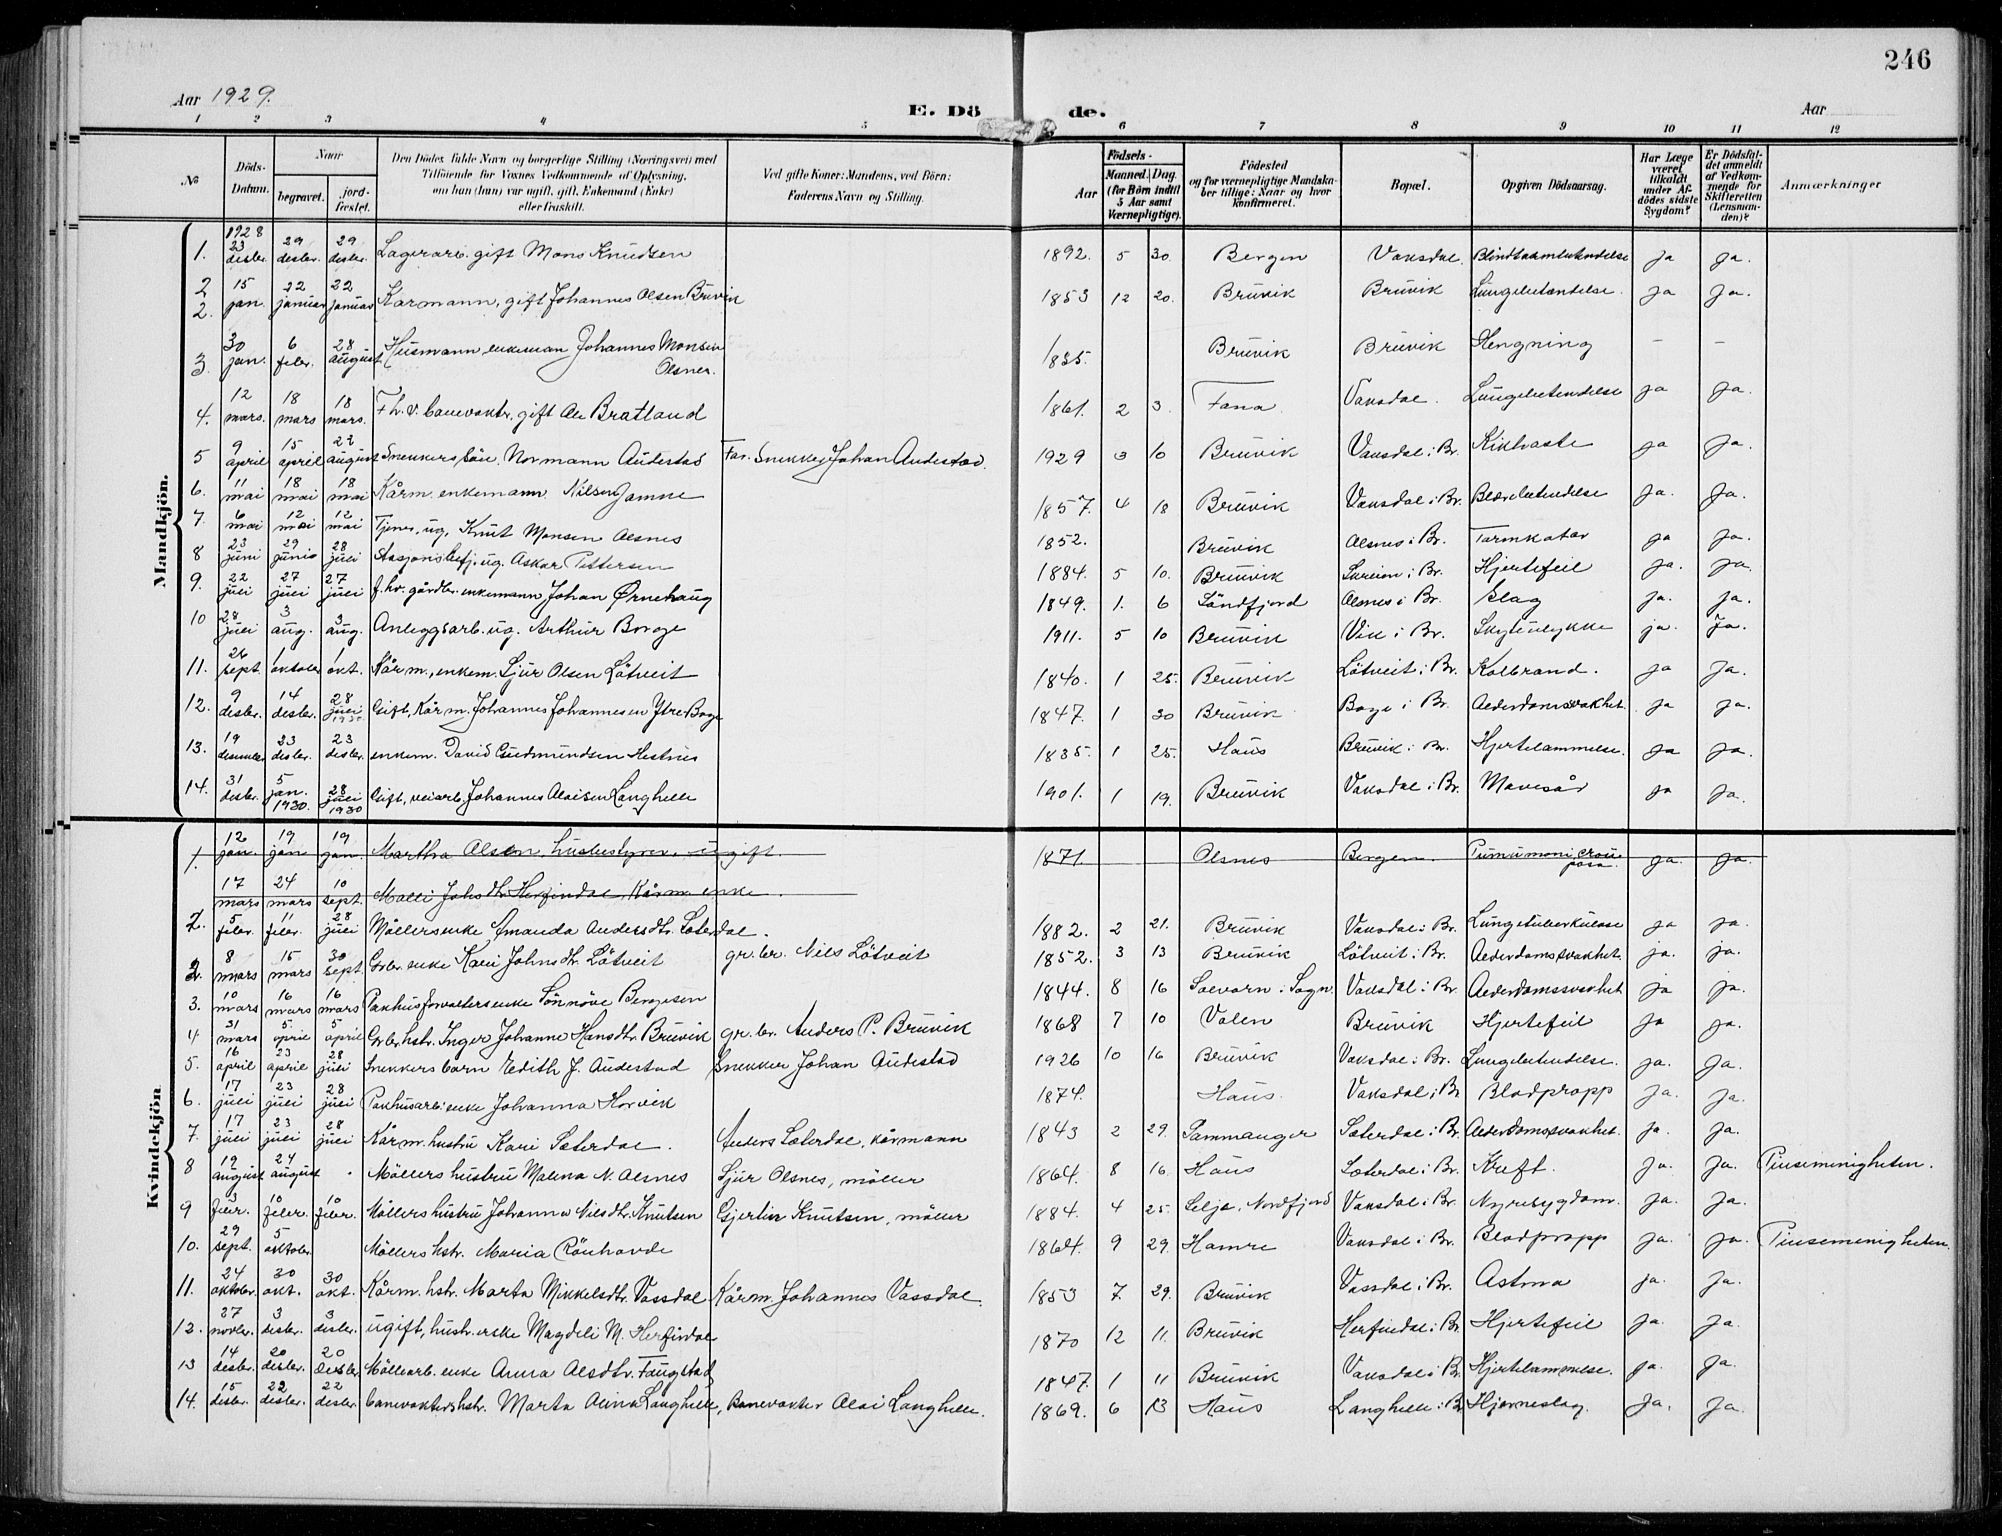 246
Aar 1929.
E. Dö de.
Aar
1 2 3 4 5 6 7 8 9 10 11 12
№ Döds-Datum. Naar begravet. jord-fæstet. Den Dödes fulde Navn og borgerlige Stilling (Næringsvei) med Tilföiende for Voxnes Vedkommende af Oplysning, om han (hun) var ugift, gift, Enkemand (Enke) eller fraskilt. Ved gifte Koner: Mandens, ved Börn: Faderens Navn og Stilling. Aar Födsels- Maaned. Dag. (for Börn indtil 5 Aar samt Værnepligtige). Födested og for værnepligtige Mandskaber tillige: Naar og hvor konfirmeret. Bopæl. Opgiven Dödsaarsag. Har Læge været tilkaldt under Afdödes sidste Sygdom? Er Dödsfaldet anmeldt af Vedkommende for Skifteretten (Lensmanden)? Anmærkninger
Mandkjön.
1. 1928 23 desbr. 29 desbr. 29 desbr. Lagerarb. gift Mons Knudsen 1892. 5 30. Bergen Vaksdal. Blindtarmbetendelse ja ja.
2 2. 15 jan. 22 januar 22 januar Kårmann, gift Johannes Olsen Bruvik 1853 12 20. Bruvik Bruvik Lungebetændelse. ja ja.
3. 30 jan. 6 febr. 28 august Husmann, enkeman Johannes Monsen Olsnes. 1835. Bruvik Bruvik Hengning – –
4. 12 mars. 18 mars 18 mars. Fh. v. banevoktr, gift Bratland 1861. 2 3. Fana. Vaksdal. Lungebetendelse ja ja.
5 9 april 15 april 22 august Snekkers sön Normann Audestad Far. Snekker Johan Audestad. 1929 3 10 Bruvik Vaksdal i Br. Kikhoste ja ja.
6. 11 mai 18 mai 18 mai Kårm. enkemann Nils Jamne 1857. 4 18 Bruvik Vaksdal i Br. Blærebetendelse ja. ja.
7. 6 mai 12 mai 12 mai Tjener, ug. Knut Monsen Olsnes 1852. Bruvik Olsnes i Br. Tarmkatar ja ja.
8 23 juni 29 junie 28 juli Stasjonsbetj. ug. Askar Pettersen 1884. 5 10. Bruvik i Br. Hjertefeil ja. ja.
9. 22 juli 27 juli 27 juli f. hv. gårdbr. enkemann Johan Ørnehaug 1849. 1. 6 Söndfjord Olsnes i Br. Slag ja. ja.
10 28 juli 3 aug. 3 aug. Anleggsarb. ug. Arthur Boge 1911. 5 10 Bruvik Vik i Br. Skyteulykke ja. ja.
11. 26 sept. 1 oktober 1 okt. Kårm., enkem. Sjur Olsen Lötveit 1840. 1 25. Bruvik Lötveit i Br. Kolbrand. ja ja.
12. 9 desbr. 14 desbr. 28 juli 1930 Gift, Kårm. Johannes Johannesen Ytre Boge 1847. 1 30 Bruvik Boge i Br. Alderdomssvakhet. ja ja.
13. 19 desember 23 desbr. 23 desbr. enkem. David Gudmundsen Hestnes 1835. 1 25. Haus Bruvik i Br. Hjertelammelse. ja ja.
14. 31 desbr. 5 jan. 1930. 28 juli 1930 Gift, veiarb. Johannes Olaisen Langhelle 1901. 1 19. Bruvik Vaksdal i Br. Mavesår ja ja.
Kvindekjön
1. 12 jan. 19 jan 19 jan. Martha Olsen, husbestyrer, ugift. 1871. Olsnes Bergen. Pneumoni croupøsa ja. ja.
17 mars 24 mars 10 sept. Malli Johs dtr. Herfindal, Kårm. enke.
2. 5 febr. 11 febr. 28 juli Möllers enke Amanda Andersdtr. Sæterdal. 1882. 2 21. Bruvik Vaksdal i Br. Lungetuberkulose ja ja.
2. 8 mars 15 mars 30 sept. Grbr. enke Kari Johnsdtr. Lötveit gr. br. Nils Lötveit 1852. 3 13 Bruvik Lötveit i Br. Alderdomssvakhet. ja. ja.
3. 10 mars 16 mars 16 mars Pakhusforvalters enke Sönnöve Bergesen 1844. 8 16 Solvorn i Sogn. Vaksdal i Br. Alderdomssvakhet ja ja.
4 31 mars 5. april 5 april Grbr. hstr. Inger Johanne Hansdtr. Bruvik gr. br. Anders P. Bruvik 1868 7 10 Valen Bruvik Hjertefeil ja ja.
5. 16 april 23 april 28 juli Snekkers barn Edith J. Audestad Snekker Johan Audestad 1926 10 16 Bruvik Vaksdal i Br. Lungebetendelse. ja. ja.
6. 17 juli 23 juli 28 juli Pakhusarb. enke Johanna Horvik 1874. Haus. Vaksdal i Br Blodpropp ja. ja.
7. 17 juli 23 juli 28 juli Kårm. hustru Kari Sæterdal. Anders Sæterdal, kårmann 1843 2 29. Sammanger Sæterdal i Br. Alderdomssvakhet. ja. ja.
8 19 august 24 august . Möllers hustru Malena N. Olsnes Sjur Olsnes, möller 1864. 8 16. Haus Sæterdal i Br. Kreft. ja. ja. Pinsemenigheten.
9 3 febr. 10 febr. 10 febr. Möllers hustru Johanna Nilsdtr. Knutsen Gjertin Knutsen, möller 1884. 4 25. Selje, Nordfjord Vaksdal i Br. Nyresygdom. ja. ja.
10. 29 sept. 5 oktober Möllers hstr. Maria Rönhovde 1864. 9 29. Hamre Vaksdal i Br. Blodpropp ja. ja. Pinsemenigheten.
11. 24 oktober. 30 okt. 30 okt. Kårm. hstr. Marta Mikkelsdtr. Vassdal Kårm. Johannes Vassdal. 1853 7. 29. Bruvik Vassdal i Br. Astma ja. ja.
12. 27 novbr. 3 desbr. 3 desbr. ugift, Magdeli M. Herfindal 1870 12 11. Bruvik Herfindal i Br. Hjertefeil ja. ja.
13 14 desbr. 20 desbr. 20 desbr. Möllearb. enke Anna Olsdtr. Faugstad 1847. 1 11 Bruvik Vaksdal i Br. Hjertelammelse. ja. ja.
14. 15 desbr. 22 desbr. 22 desbr. banevokters hstr. Marta Olina Langhelle, Banevokter Olai Langhelle. 1869. 6 13 Haus Langhelle i Br Hjerneslag. ja. ja.